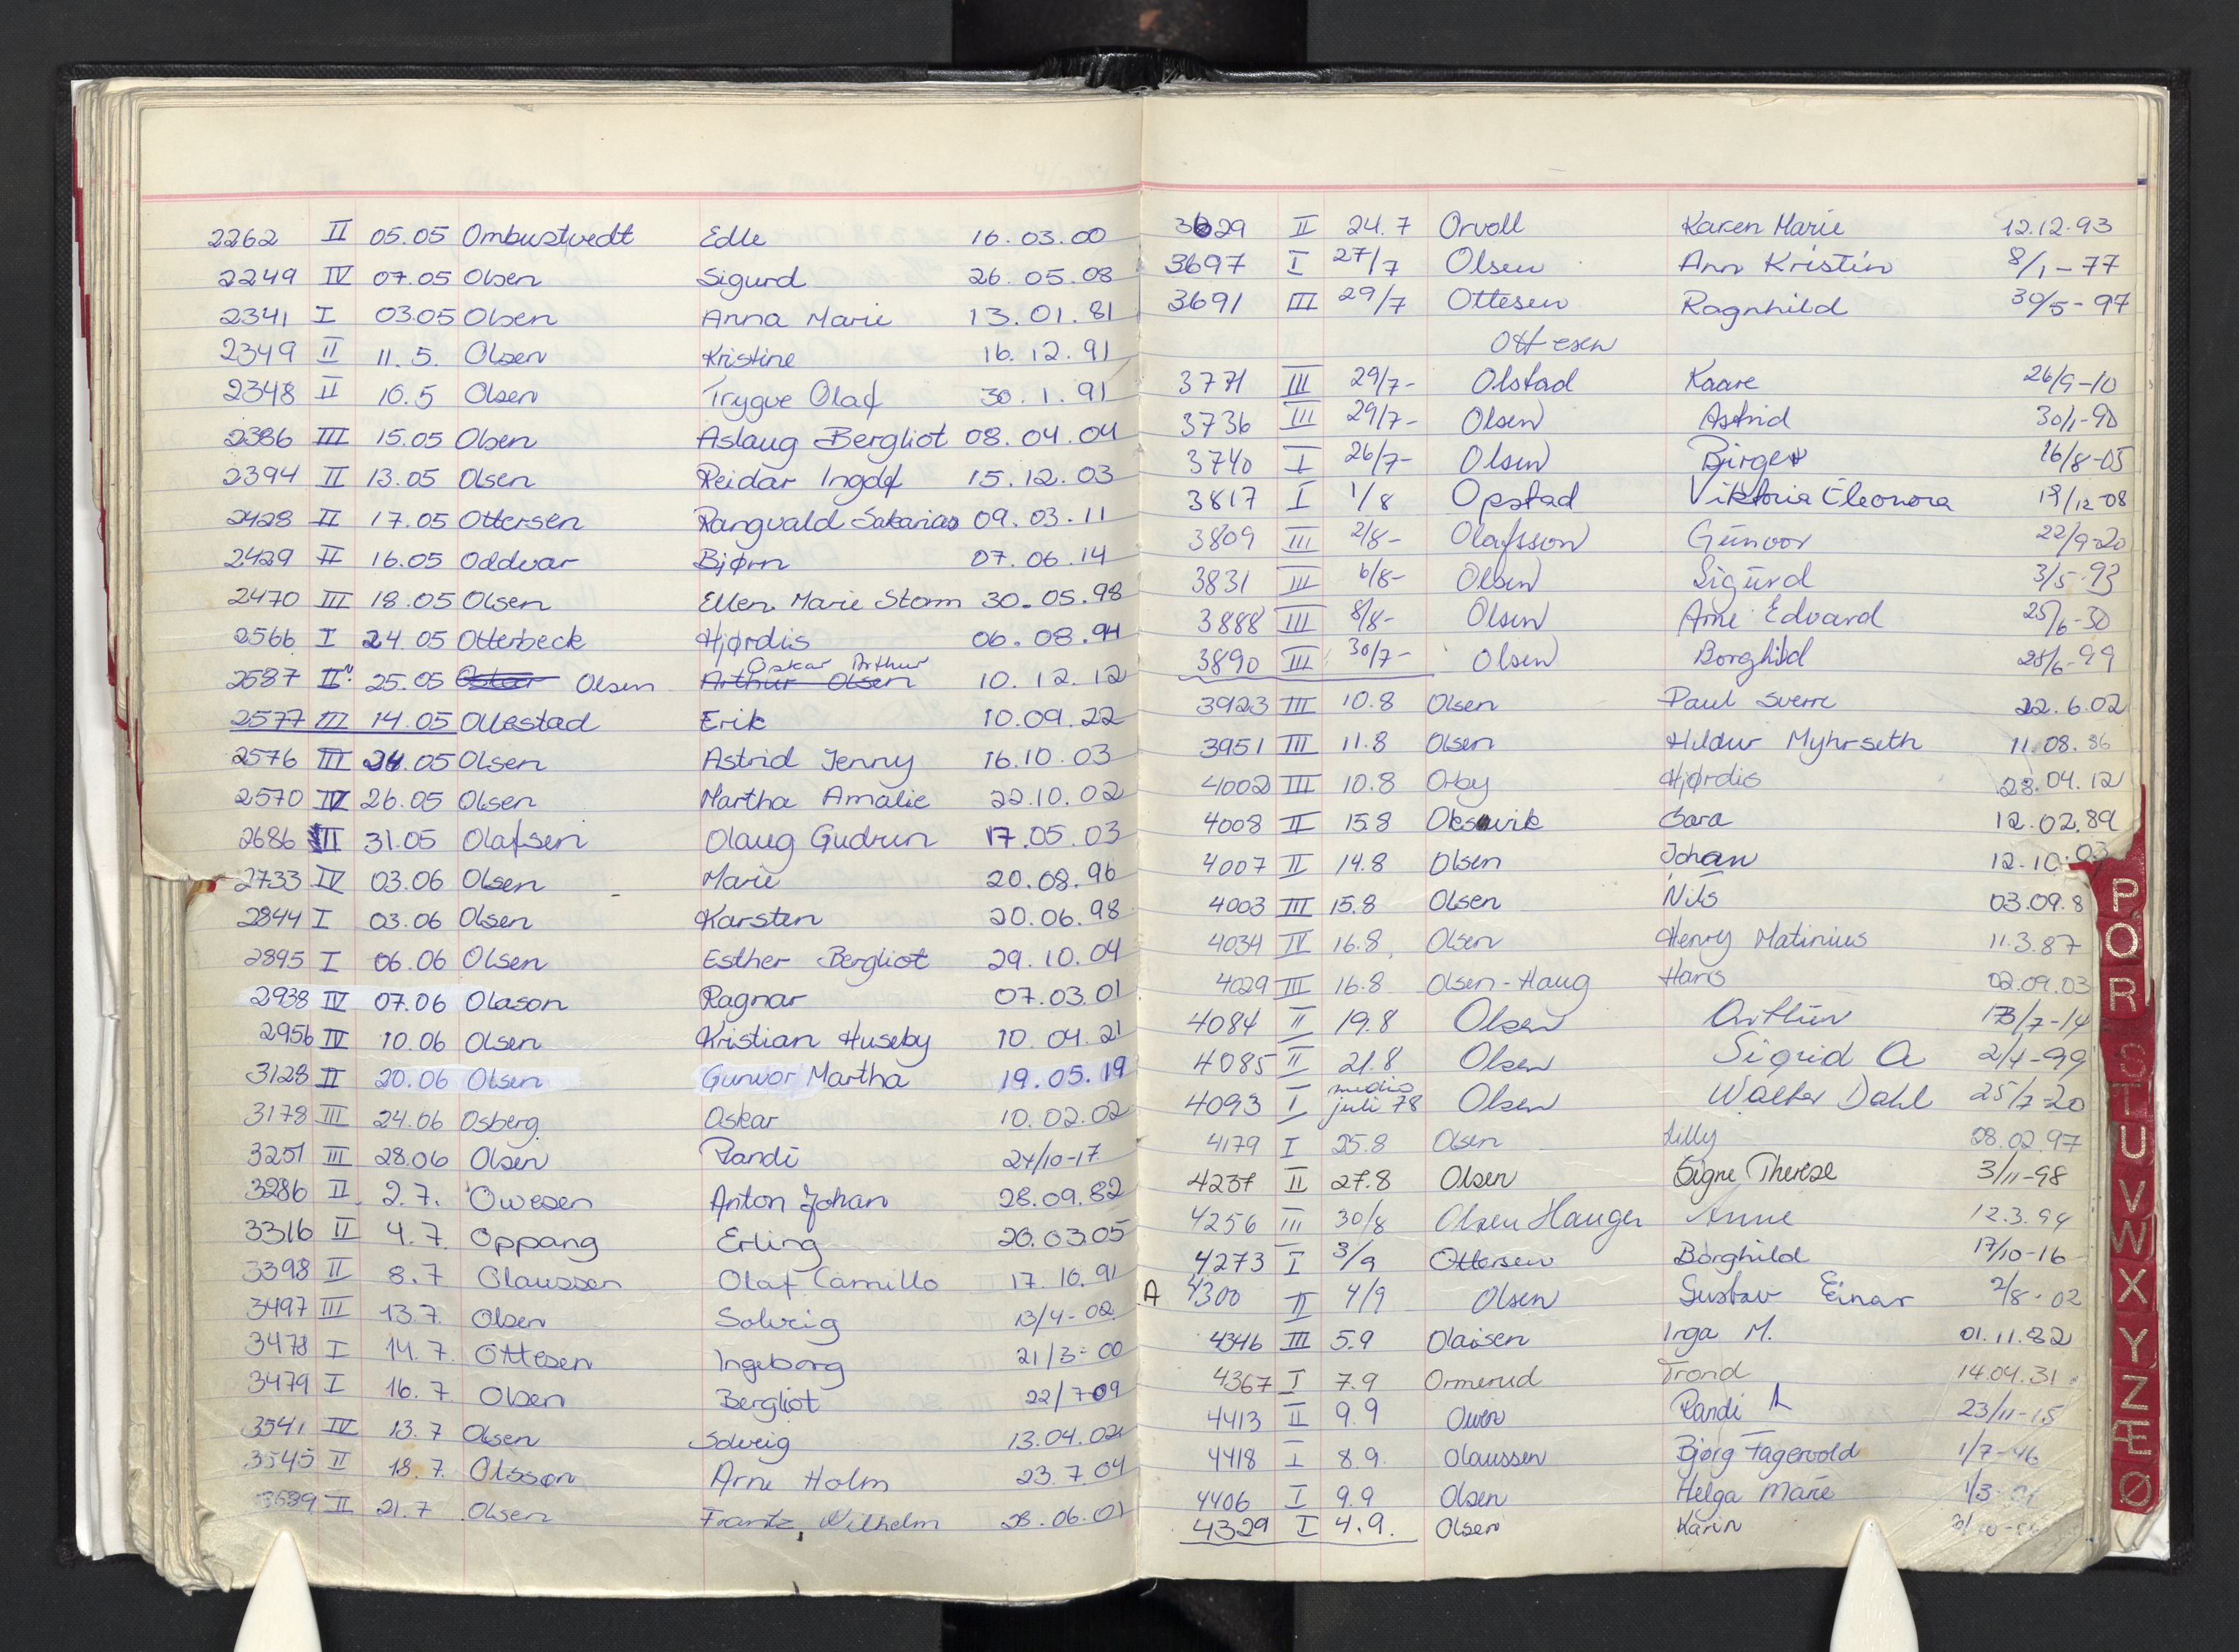 2262 II 05.05 Ombustvedt Edle 16.03.00
2249 IV 07.05 Olsen Sigurd 26.05.08
2341 I 03.05 Olsen Anna Marie 13.01.81
2349 II 11.5. Olsen Kristine 16.12.91
2348 II 10.5 Olsen Trygve Olaf 30.1.91
2386 III 15.05 Olsen Aslaug Bergliot 08.04.04
2394 II 13.05 Olsen Reidar Ingolf 15.12.03
2428 II 17.05 Ottersen Rangvald Sakarias 09.03.11
2429 II 16.05 Oddvar Bjørn 07.06.14
2470 III 18.05 Olsen Ellen Marie Storm 30.05.98
2566 I 24.05 Otterbeck Hjørdis 06.08.94
Oskar Arthur
2587 II 25.05 Oskar Olsen Arthur Olsen 10.12.12
2577 III 14.05 Ollestad Erik 10.09.22
2576 III 24.05 Olsen Astrid Jenny 16.10.03
2570 IV 26.05 Olsen Martha Amalie 22.10.02
2686 II 31.05 Olafsen Olaug Gudrun 17.05.03
2733 IV 03.06 Olsen Marie 20.08.96
2844 I 03.06 Olsen Karsten 20.06.98
2895 I 06.06 Olsen Esther Bergliot 29.10.04
2938 IV 07.06 Olason Ragnar 07.03.01
2956 IV 10.06 Olsen Kristian Huseby 10.04.21
3128 II 20.06 Olsen Gunvor Martha 19.05.19
3178 III 24.06 Osberg Oskar 10.02.02
3251 III 28.06 Olsen Randi 24/10-17
3286 II 2.7. Owesen Anton Johan 28.09.82
3316 II 4.7. Oppang Erling 20.03.05
3398 II 8.7 Olaussen Olaf Camillo 17.10.91
3497 III 13.7. Olsen Solveig 13/4-02
3478 I 14.7. Ottesen Ingeborg 21/3-00
3479 I 16.7. Olsen Bergliot 22/7-09
3541 IV 13.7 Olsen Solveig 13.04.02
3545 II 18.7. Olsson Arne Holm 23.7.04
II 21.7 Olsen Frantz Wilhelm 28.06.01
3629 II 24.7 Orvoll Karen Marie 12.12.93
3697 I 27/7 Olsen Ann Kristin 8/1-77
3691 III 29/7 Ottesen Ragnhild 30/5-97
Ottesen
3771 III 29/7- Olstad Kaare 26/9-10
3736 III 29/7- Olsen Astrid 30/1-90
3740 I 26/7- Olsen Birger 16/8-05
3817 I 1/8 Opstad Viktoria Eleonora 19/12-08
3809 III 2/8- Olafsson Gunvor 22/9-20
3831 III 6/8- Olsen Sigurd 3/5-93
3888 III 8/8- Olsen Arne Edvard 25/6-30
3890 III 30/7- Olsen Borghild 28/6-99
3923 III 10.8 Olsen Paul Sverre 22.6.02
3951 III 11.8 Olsen Hildur Myhrseth 11.08.86
4002 III 10.8 Orby Hjørdis 28.04.12
4008 II 15.8 Oksavik Sara 12.02.89
4007 II 14.8 Olsen Johan 12.10.03
4003 III 15.8 Olsen Nils 03.09.8
4034 IV 16.8. Olsen Henry Matinius 11.3.87
4029 III 16.8 Olsen-Haug Hans 02.09.03
4084 II 19.8 Olsen Arthur 13/7-14
4085 II 21.8 Olsen Sigrid A 2/4-99
4093 I medio juli 78 Olsen Walter Dahl 25/7-20
4179 I 25.8 Olsen Lilly 28.02.97
4237 II 27.8 Olsen Signe Therese 3/11-98
4256 III 30/8 Olsen Hauger Anne 12.3.94
4273 I 3/9 Ottersen Borghild 17/10-16
A 4300 II 4/9 Olsen Gustav Einar 2/8-02
4346 III 5.9 Olaisen Inga M. 01.11.82
4367 I 7.9 Ormerud Trond 14.04.31
4413 II 9.9 Owen Randi 23/11-15
4418 I 8.9. Olaussen Bjørg Fagervold 1/7-46
4406 I 9.9 Olsen Helga Marie 1/3
4329 I 4.9. Olsen Karin
P
O
R
S
T
U
V
W
X
Y
Z
Æ
Ø